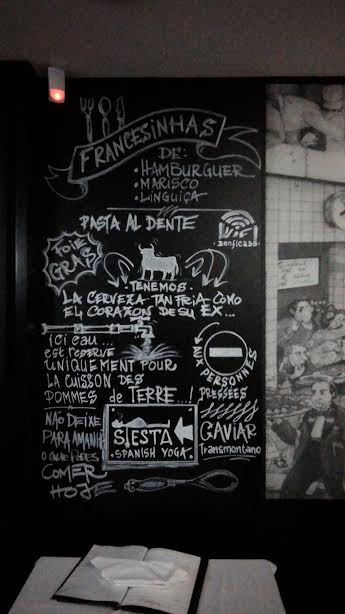 FRANCESINHAS
DE:
• HAMBURGUER
• MARISCO
• LINGUIÇA
PASTA AL DENTE
FOIE
GRAS
TENEMOS
LA CERVEZA TAN FRIA COMO
EL CORAZON DE SU EX...
ici eau...
est reservé
UNIQUEMENT POUR
LA CUISSON DES
POMMES de TERRE...!
PERSONNES
PRESSÉES
NÃO DEIXE
PARA AMANHÃ
O QUE PODES
COMER
HOJE
SIESTA
• SPANISH YOGA •
CAVIAR
Transmontano